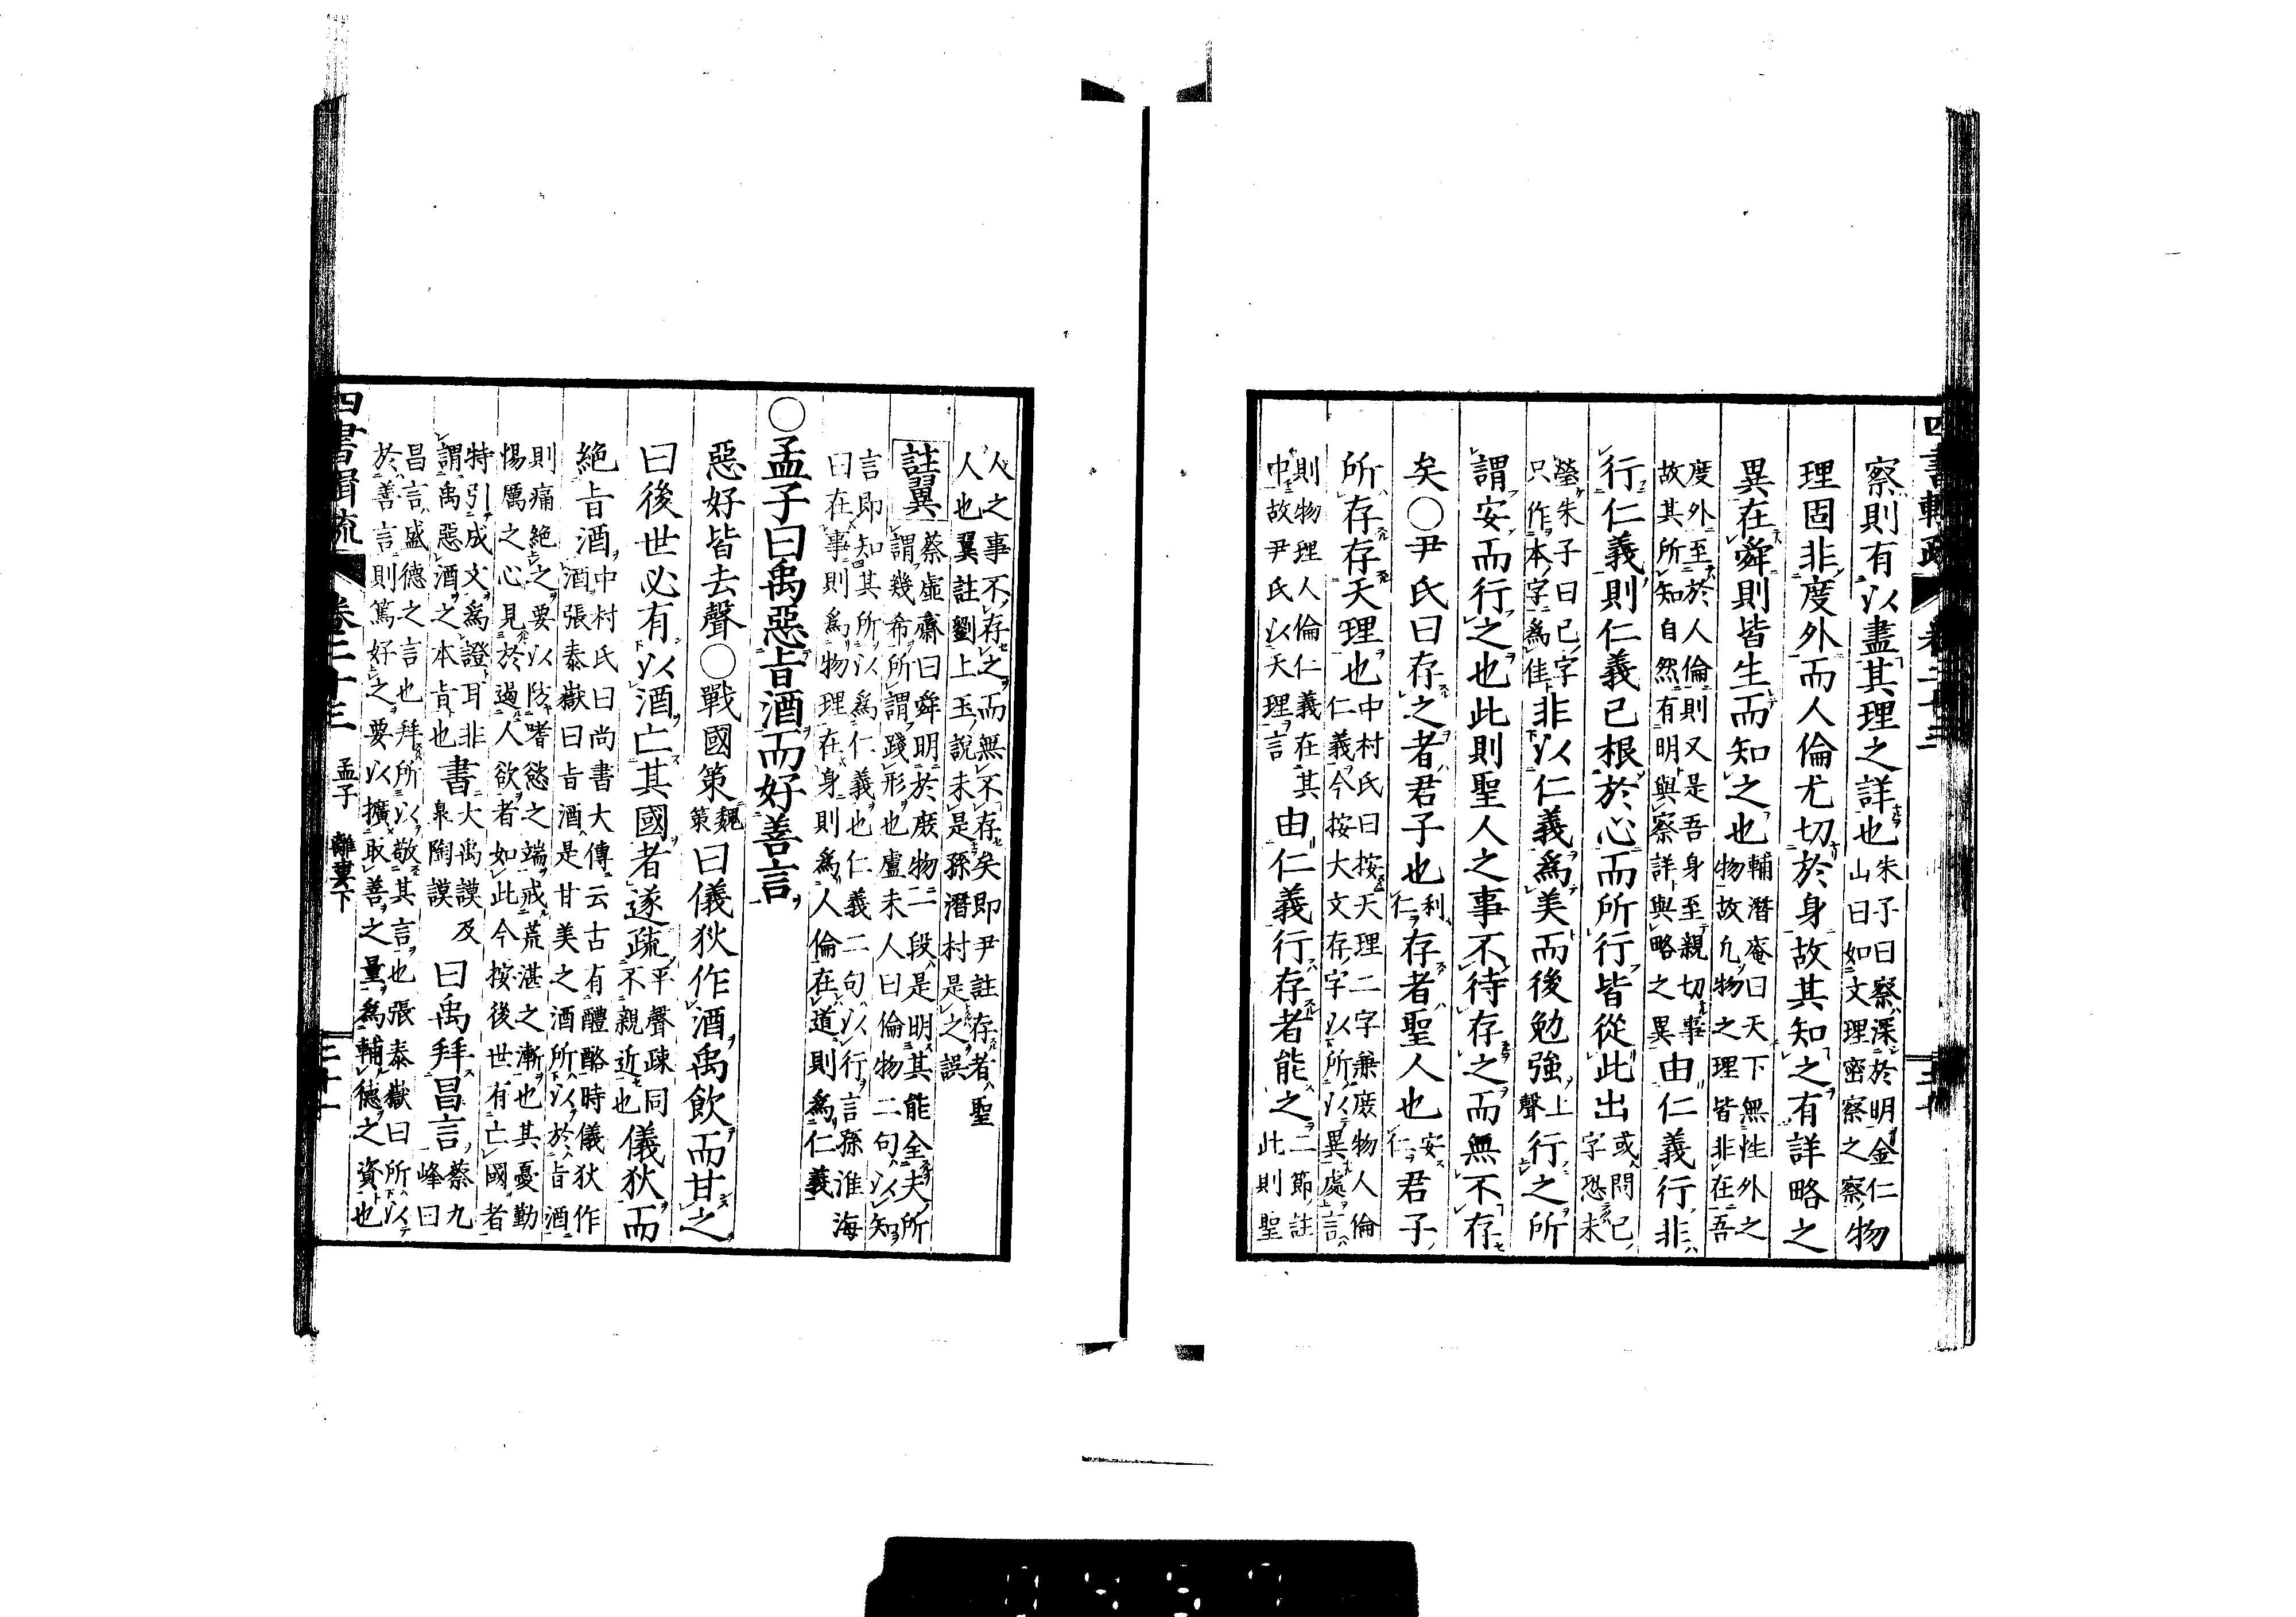 四書輯疏 卷二十三
察則有以盡其理之詳也朱子曰察深於明金仁
山曰如文理密察之察物
理固非度外而人倫尤切於身故其知之有詳略之
異在舜則皆生而知之也輔潛庵曰天下無性外之
物故凡物之理皆非在吾
度外至於人倫則又是吾身至親切事
故其所知自然有明與察詳與略之異由仁義行非
行仁義則仁義已根於心而所行皆從此出或問已
字恐未
瑩朱子曰已字
只作本字為佳非以仁義爲美而後勉強上
聲行之所
謂安而行之也此則聖人之事不待存之而無不存
矣○尹氏曰存之者君子也利
仁存者聖人也安
仁君子
所存存天理也中村氏曰按天理二字兼庶物人倫
仁義今按大文存字以所以異處言
則物理人倫仁義在其
中故尹氏以天理言由仁義行存者能之二節註
此則聖
人之事不存之而無不存矣即尹註存者聖
人也翼註劉上玉說未是孫潛村是之誤
註翼蔡虛齋曰舜明於庶物二段是明其能全夫所
謂幾希所謂踐形也盧未人曰倫物二句以知
言即知其所以爲仁義也仁義二句以行言孫淮海
曰在事則爲物理在身則爲人倫在道則爲仁義
○孟子曰禹惡旨酒而好善言
惡好皆去聲○戰國策魏
策曰儀狄作酒禹飲而甘之
曰後世必有以酒亡其國者遂疏平聲疎同
不親近也儀狄而
絶旨酒中村氏曰尚書大傳云古有醴酪時儀狄作
酒張泰嶽曰旨酒是甘美之酒所以於旨酒
則痛絶之要以防嗜慾之端戒荒湛之漸也其憂勤
惕厲之心見於遏人欲者如此今按後世有亡國者
特引成文爲證耳非
謂禹惡酒之本旨也書大禹謨及
皐陶謨曰禹拜昌言蔡九
峰曰
昌言盛德之言也拜所以敬其言也張泰嶽曰所以
於善言則篤好之要以擴取善之量爲輔德之資也
四書輯疏 卷二十三 孟子 離婁下 三十一